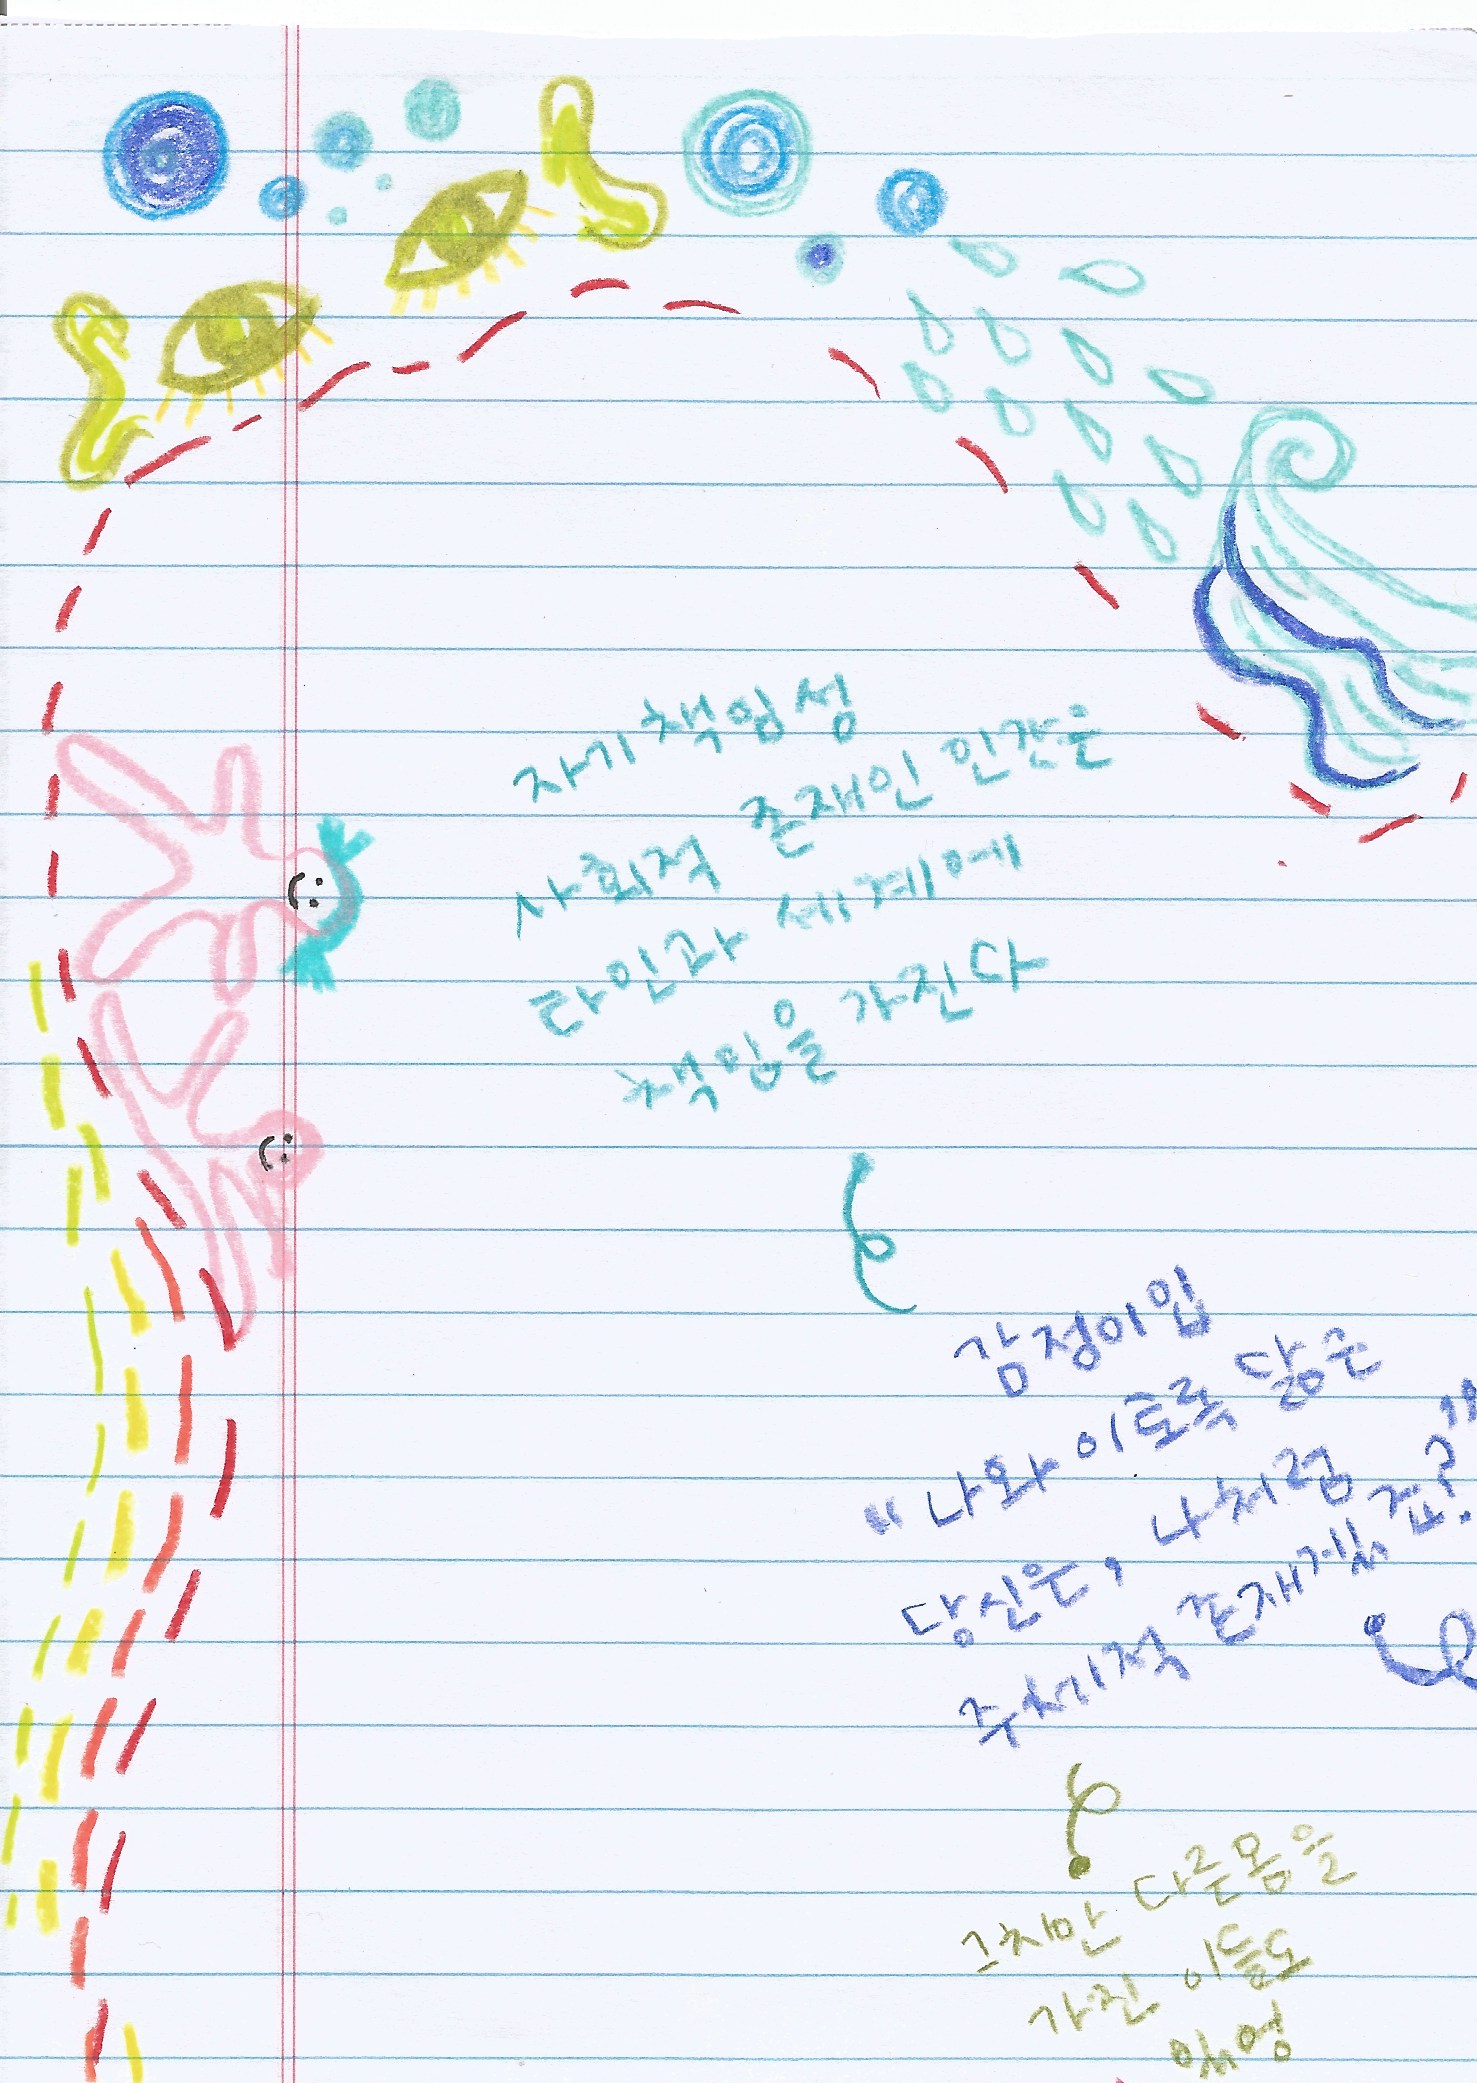 자기 책임성
사회적 존재인 인간은
타인과 세계에
책임을 가진다
감정이입
"나와 이토록 닮은
당신은, 나처럼
주체적 존재겠죠?"
그치만 다른 몸을
가진 이들도